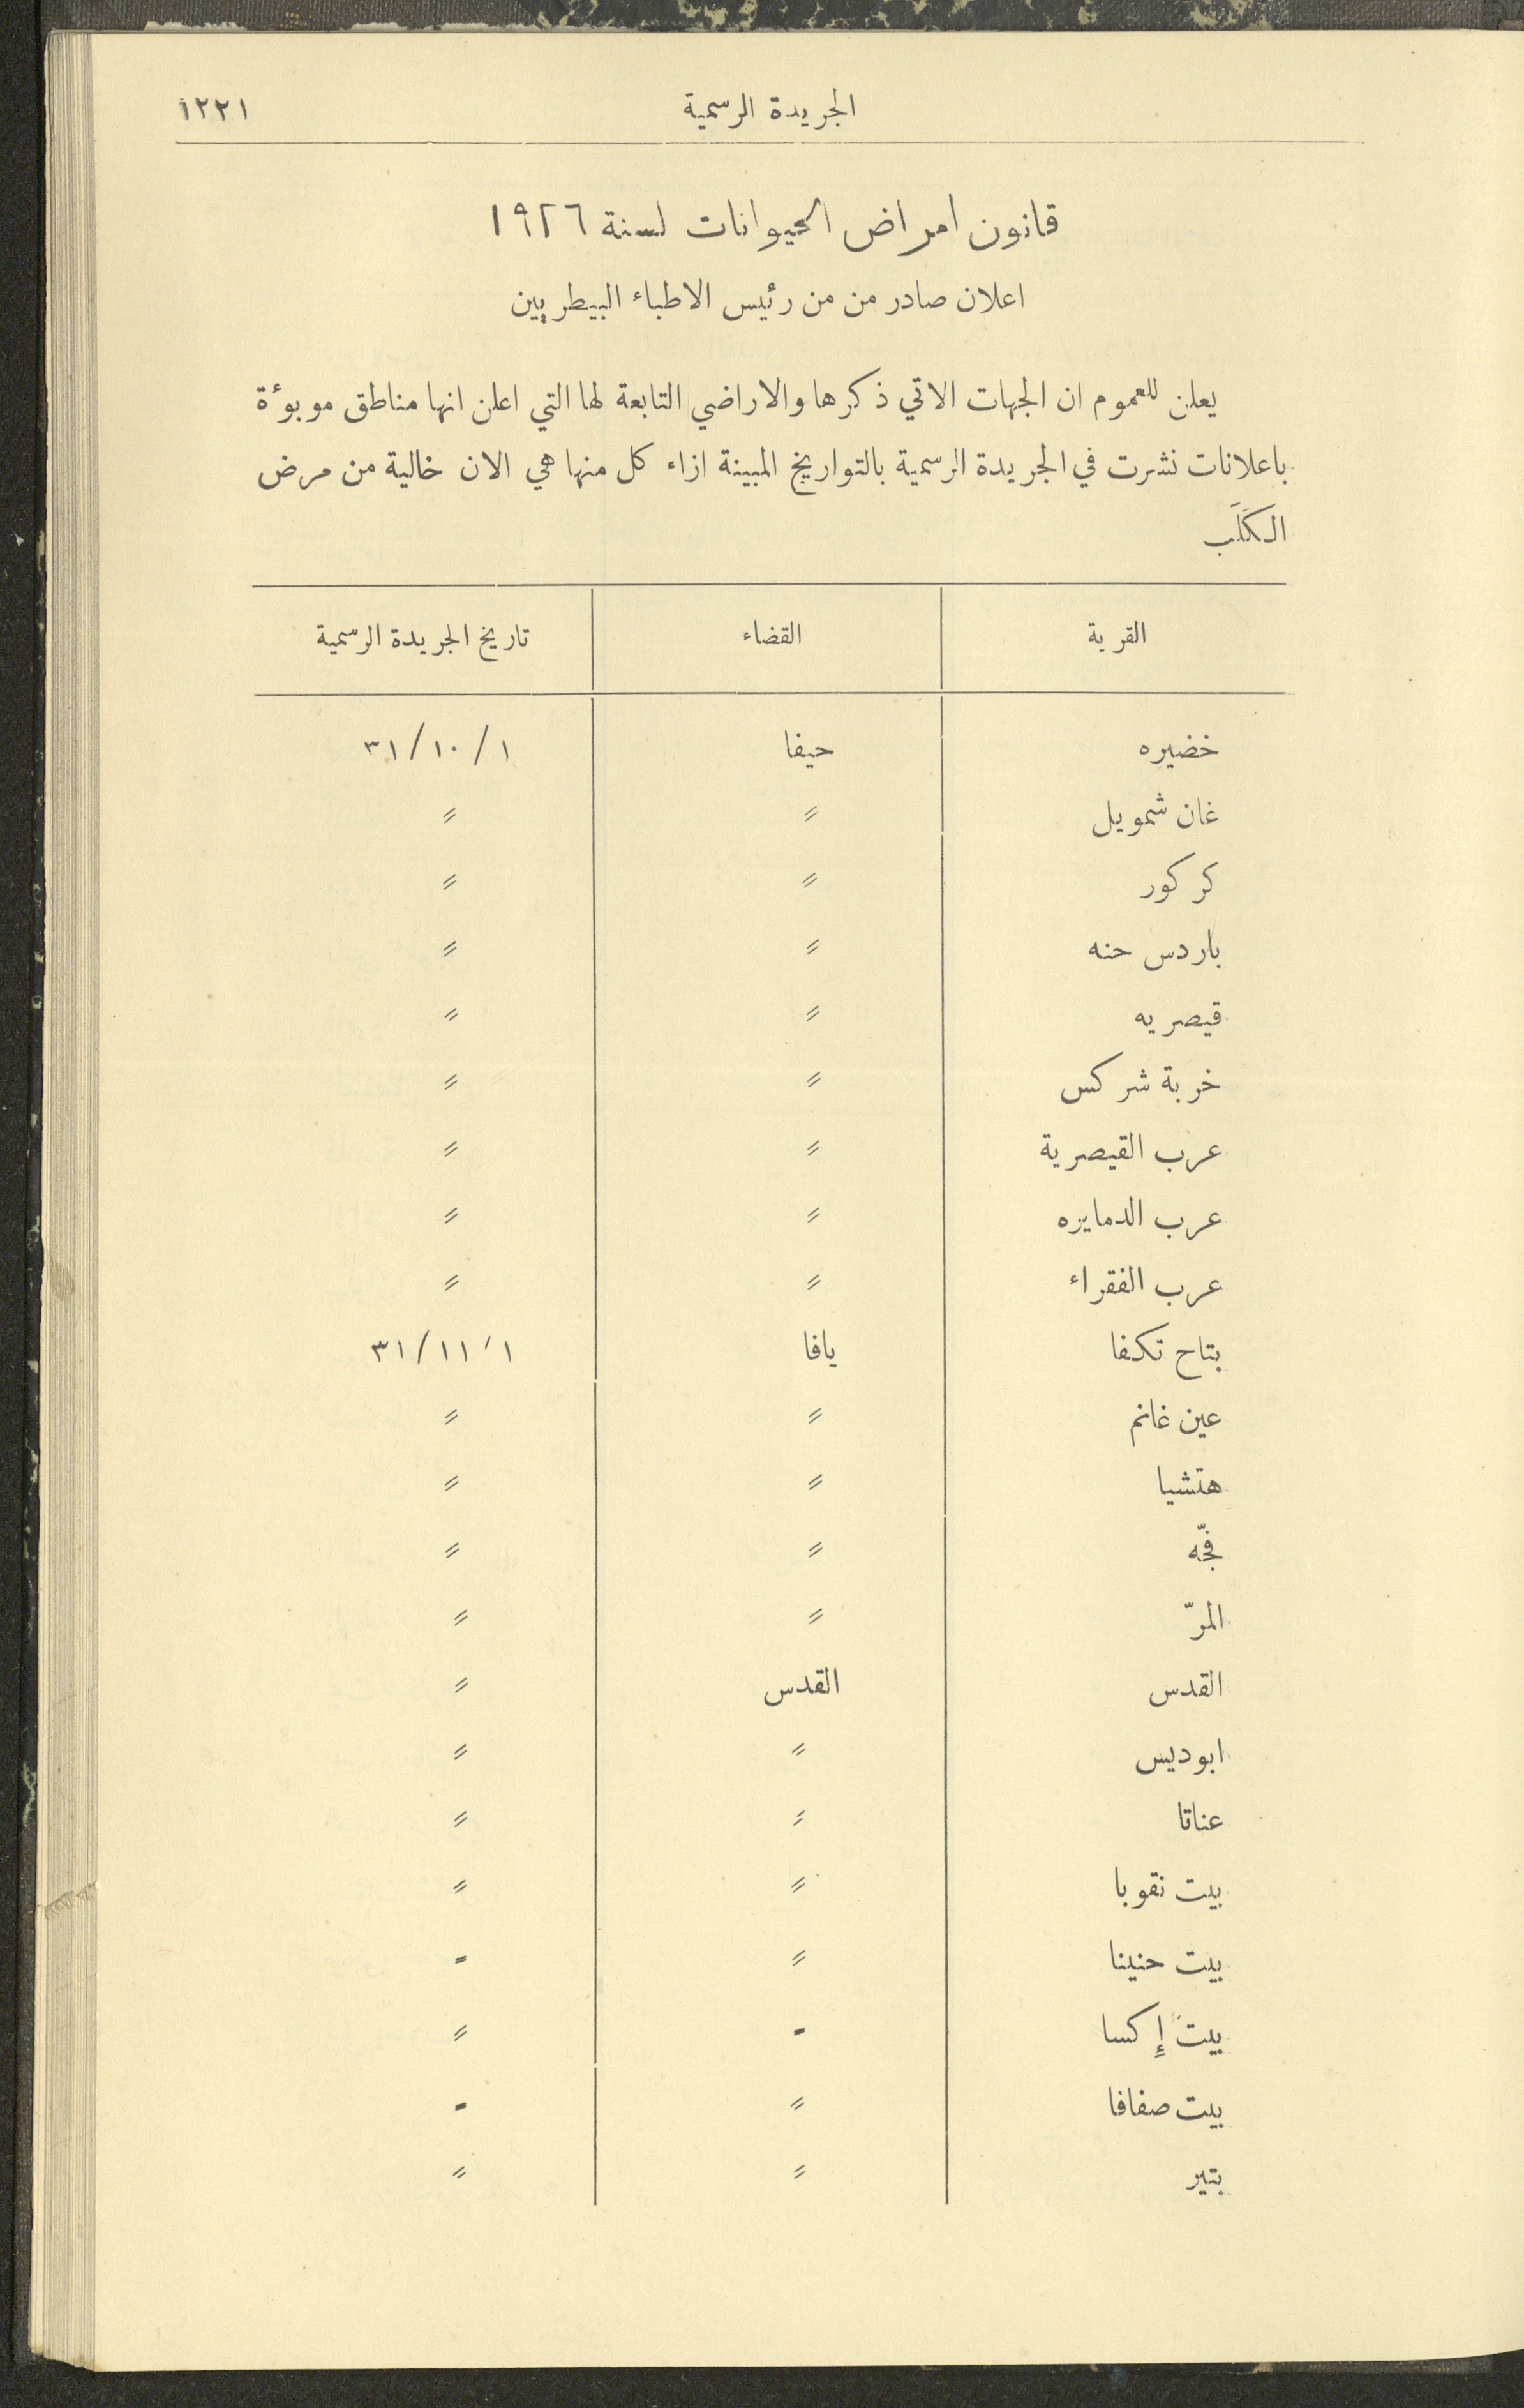 الجريدة الرسمية ١٢٢١
قانون امراض الحيوانات لسنة ١٩٢٦
اعلان صادر من من رئيس الاطباء البيطريين
يعلن للعموم ان الجهات الاتي ذكرها والاراضي التابعة لها التي اعلن انها مناطق موبوٴة
باعلانات نشرت في الجريدة الرسمية بالتواريخ المبينة ازاء كل منها هي الان خالية من مرض
الكَلَب
القرية القضاء تاريخ الجريدة الرسمية
خضيره حيفا ٣١/١٠/١
غان شمويل 〃 〃
كركور 〃 〃
باردس حنه 〃 〃
قيصريه 〃 〃
خربة شركس 〃 〃
عرب القيصرية 〃 〃
عرب الدمايزه 〃 〃
عرب الفقراء 〃 〃
بتاح تكفا يافا ٣١/١١/١
عين غانم 〃 〃
هتشيا 〃 〃
فجّه 〃 〃
المرّ 〃 〃
القدس القدس 〃
ابوديس 〃 〃
عناتا 〃 〃
بيت نقوبا 〃 〃
بيت حنينا 〃 -
بيت إِكسا - 〃
بيت صفافا 〃 -
بتير 〃 〃